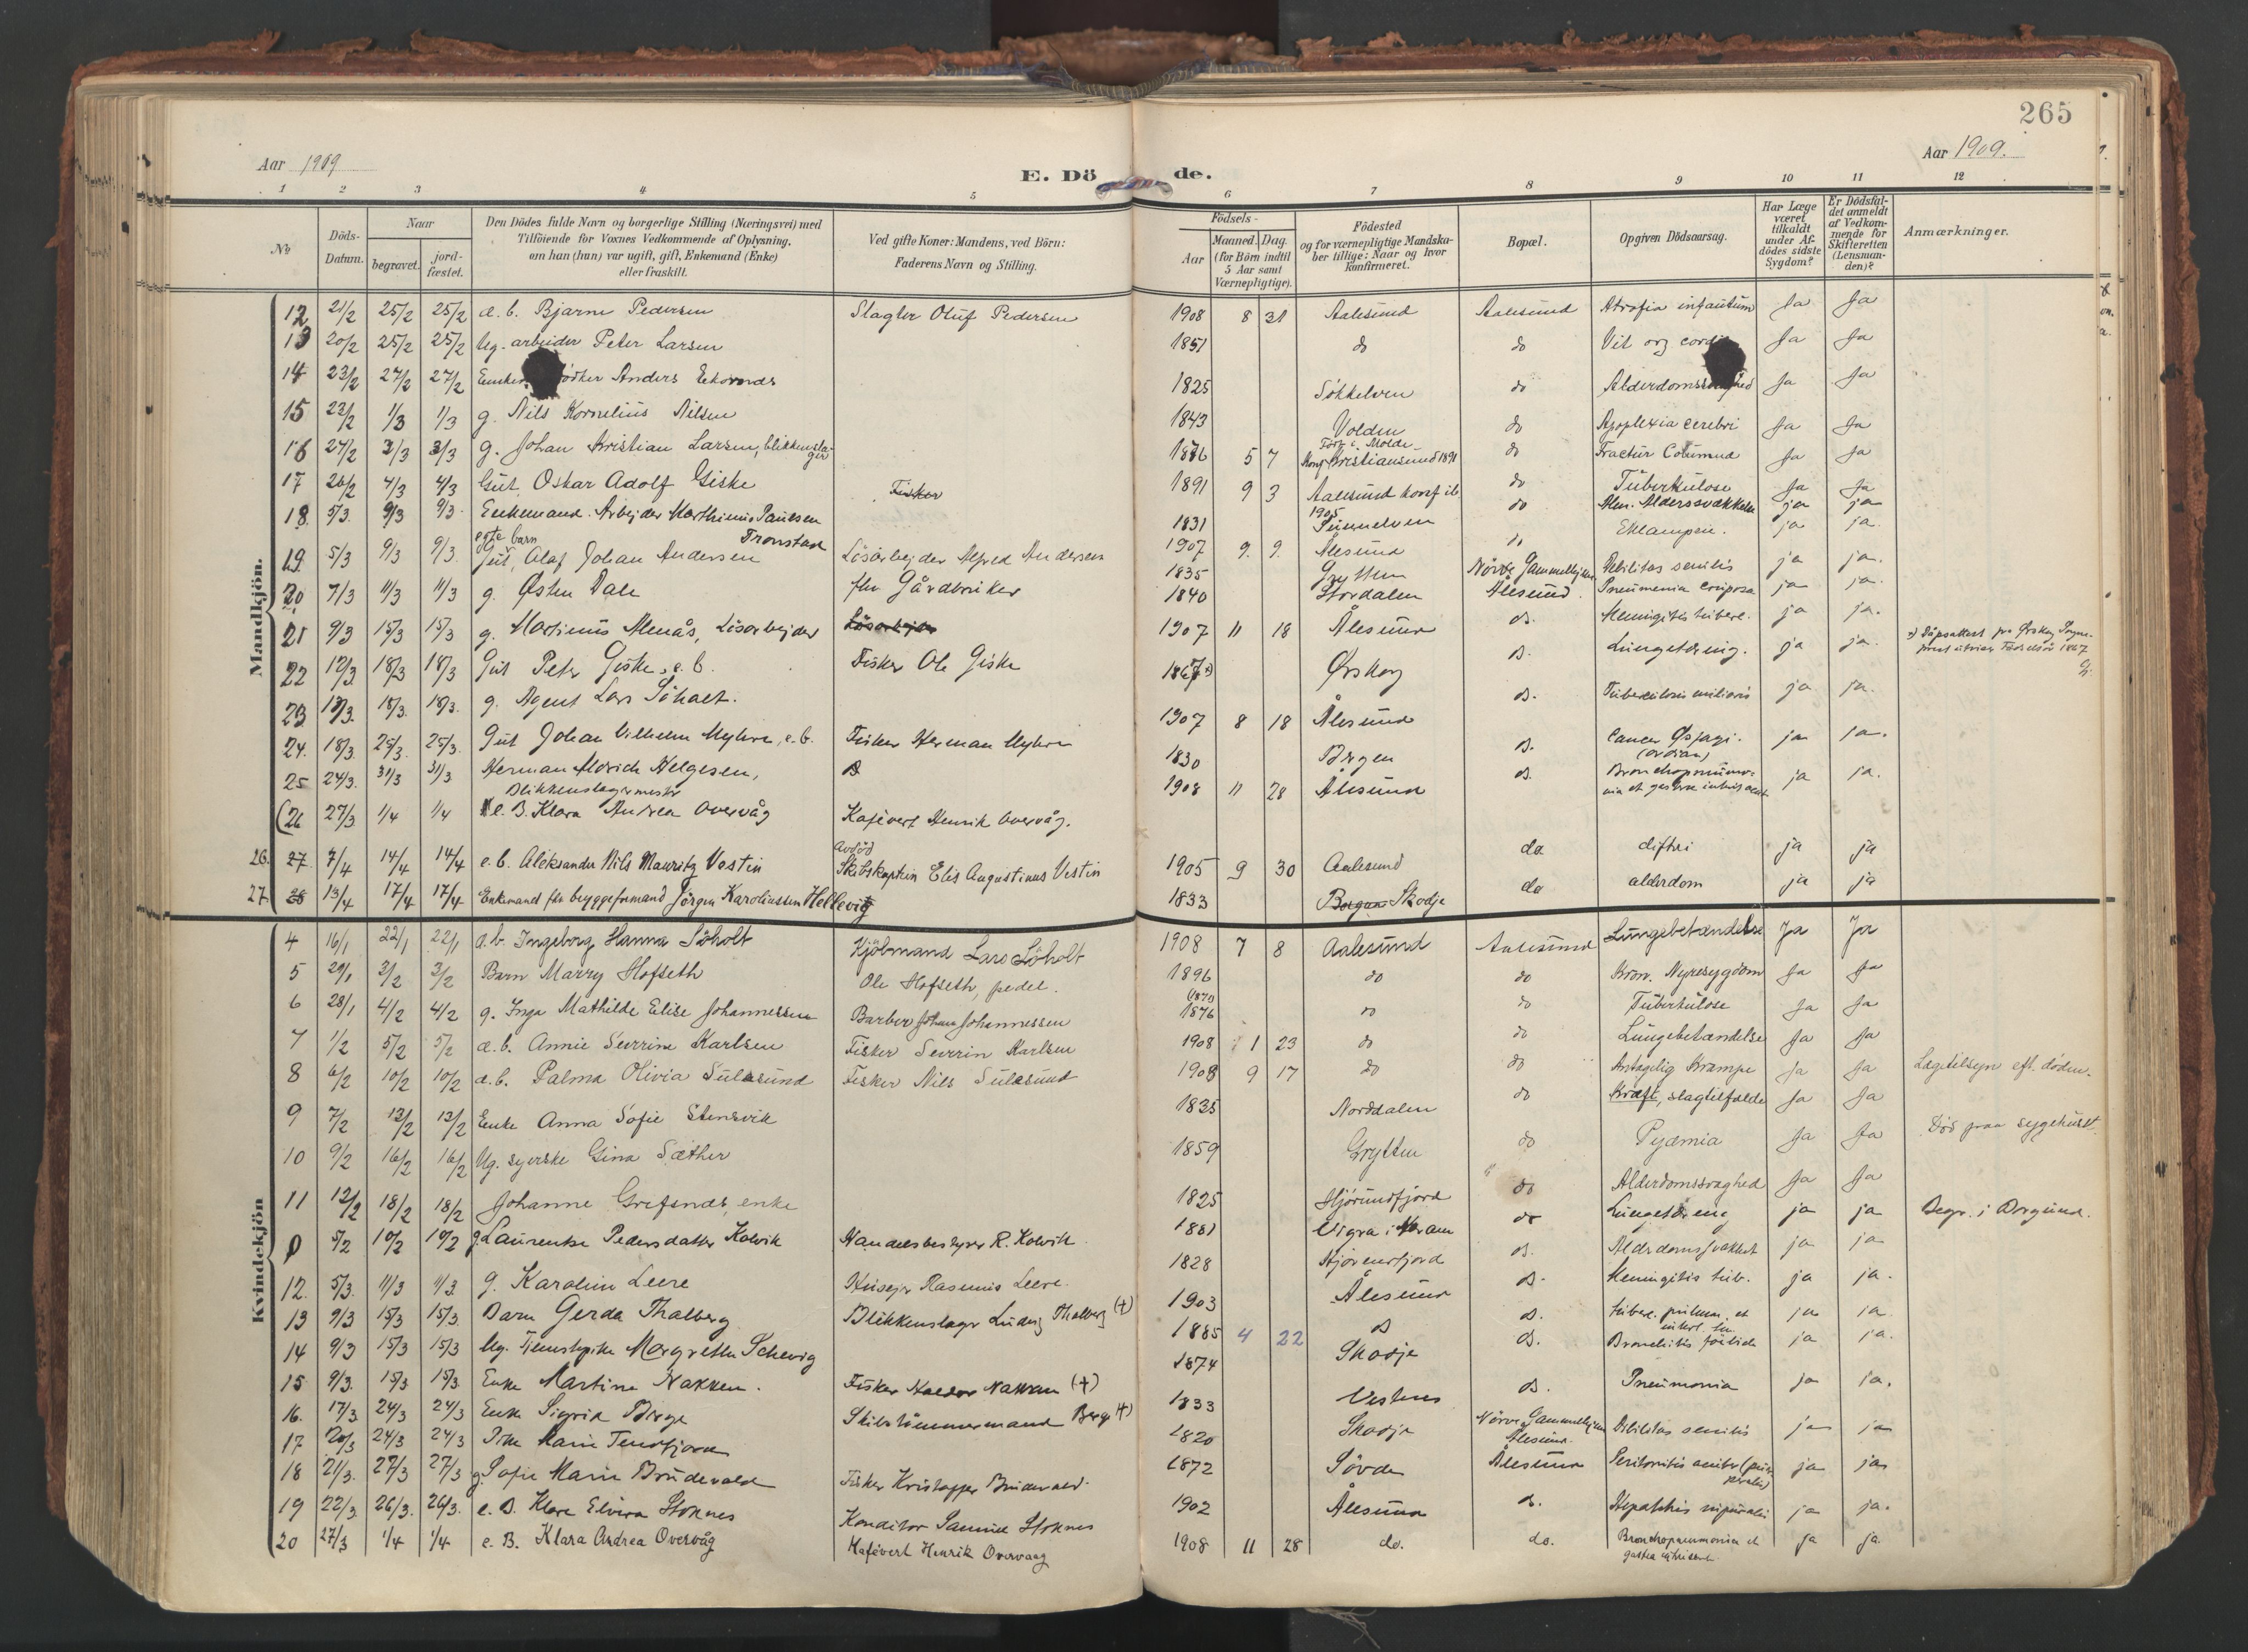 265
Aar 1909
E. Dö de.
Aar 1909.
1 2 3 4 5 6 7 8 9 10 11 12
No
Döds-Datum.
Naar
begravet.
jord-fæstet.
Den Dödes fulde Navn og borgerlige Stilling (Næringsvei) med
Tilföiende for Voxnes Vedkommende af Oplysning,
om han (hun) var ugift, gift, Enkemand (Enke)
eller fraskilt.
Ved gifte Koner: Mandens, ved Börn:
Faderens Navn og Stilling.
Födsels-
Aar
Maaned. Dag.
(for Börn indtil
5 Aar samt
Værnepligtige).
Födested
og for værnepligtige Mandska-
ber tillige: Naar og hvor
konfirmeret.
Bopæl.
Opgiven Dödsaarsag.
Har Læge
været
tilkaldt
under Af-
dödes sidste
Sygdom?
Er Dödsfal-
det anmeldt
af Vedkom-
mende for
Skifteretten
(Lensman-
den)?
Anmærkninger.
Mandkjön.
12 21/2 25/2 25/2 æ. b. Bjarne Pedersen Slagter Oluf Pedersen 1908 8 31 Aalesund Aalesund Atrofia infantum Ja Ja
13 20/2 25/2 25/2 Ug. arbeider Peter Larsen 1851 do do Vit org Ja Ja
14 23/2 27/2 27/2 Anders Ekornes 1825 Sökkelven do Ja Ja
15 23/2 1/3 1/3 g. Nils Kornelius Nilsen 1843 Volden do Apoplexia cerebri Ja Ja
16 27/2 3/3 3/3 g. Johan Kristian Larsen, blikkenslager 1876 5 7 Född i Molde Konf Kristiansund 1891 do Fractur Ja Ja
17 26/2 4/3 4/3 Gut Oskar Adolf Giske Fisker 1891 9 3 Aalesund konf ib. 1905 do Tüberkülose Ja Ja
18. 5/3. 9/3 9/3. Enkemand. Arbejder Marthinus Paulsen Tronstad 1831 Sunnelven do Alm. Alderssvakkelse ja ja
19. 5/3 9/3 9/3. egte barn Gut, Olaf Johan Andersen Lösarbejder Alfred Andersen 1907 9. 9. Ålesund Eklampsi. ja ja.
20 7/3 11/3 11/3 g. Østen Dale fhv Gårdbruker 1835 Grytten Nörve Gammelhjem Debilitas senilis ja ja.
21 9/3 15/3 15/3 g. Martinus Alnæs, Lösarbejder Lösarbejder 1840 Stordalen Ålesund. Pneumonia ja ja.
22 12/3. 18/3 18/3 Gut Peter Giske, e. b. Fisker Ole Giske 1907 11 18 Ålesund do. Meningitis tuberc. ja ja.
23 13/3. 18/3. 18/3. g. Agent Lars Söholt. 1867 x) Ørskog do. Lungetæring. ja ja. x) Dåpsattest fra Ørskog Sogne-
prest utviser Födselsår 1867
24. 18/3. 25/3. 25/3. Gut Johan Vilhelm Myhre, e. b. Fisker Herman Myhre 1907 8 18 Ålesund do. Tuberculosis miliaris ja ja.
25 24/3. 31/3 31/3 Herman Aldrich Helgesen, Blikkenslagermester 1830 Bergen do. Cancer ja ja.
(26 27/3 1/4 1/4 e. B. Klara Andrea Overvåg Kafévert Henrik Overvåg. 1908 11 28 Ålesund do. Bronchopneumo-
nia et ja ja.
26. 27. 7/4 14/4 14/4 e. b. Aleksander Nils Mauritz Vestin avdöd Skibskaptein Elis Augustinus Vestin 1905 9 30 Aalesund do. difteri ja ja
27. 28 13/4 17/4 17/4 Enkemand fhv bryggeformand Jörgen Karoliussen Hellevig 1833 Borgund Skodje do alderdom ja ja
Kvindekjön
4 16/1 22/1 22/1 æ. b. Ingeborg Hanna Söholt Kjöbmand Lars Söholt 1908 7 8 Aalesund Aalesund Lungebetændelse Ja Ja
5 29/1 3/2 3/2 Barn Marry Hofseth Ole Hofseth, pedel. 1896 do do Kron. Nyresygdom Ja Ja
6 28/1 4/2 4/2 g. Inga Mathilde Elise Johannessen Barber Johan Johannessen (1870 1876 do do Tüberkülose Ja Ja
7 1/2 5/2 5/2 æ. b. Annie Severine Karlsen Fisker Severin Karlsen 1908 1 23 do do Lungebetændelse Ja Ja
8 6/2 10/2 10/2 æ. b. Palma Olivia Sulesund Fisker Nils Sulesund 1908 9 17 do do Antagelig Krampe Ja Ja Lægetilsyn eft. döden.
9 7/2 13/2 13/2 Enke Anna Sofie Stensvik 1835 Norddalen do Kræft, slagtilfælde Ja Ja
10 9/2 16/2 16/2 Ug. syerske Gina Sæther 1859 Grytten do Pyæmia Ja Ja Död paa sygehuset.
11 12/2 18/2 18/2 Johanne Grefsnes, enke 1825 Hjörundfjord do Alderdomssvaghed Ja Ja
0 5/2 10/2 10/2 g. Laurentse Pedersdatter Kolvik Handelsbestyrer R. Kolvik 1881 Vigra i Haram do Lungetæring ja ja Begr. i Borgund.
12. 5/3. 11/3 11/3. g. Karoline Leere Huseier Rasmus Leere. 1828 Hjörundfjord do. Alderdomssvakhet ja ja
13 9/3 15/3 15/3. Barn Gerda Thalberg Blikkenslager Ludvig Thalberg (+) 1903 Ålesund do. Meningitis tub. ja ja.
14 9/3 15/3 15/3 Ug. Tjenestepike Margrethe Schevig 1885 4 22 do do. ja ja
15 9/3. 15/3 15/3. Enke Martine Nakken. Fisker Nakken (+) 1874 Skodje do. Bronchitis ja ja.
16. 17/3. 24/3 24/3 Enke Sigrid Berge Skibstömmermand Berge (+) 1833 Vestnes do. Pneumonia ja ja.
17 20/3 24/3 24/3 Pike Marie Tennfjord 1820 Skodje Nörve Gammelhjem Ålesund. Debilitas senilis ja ja
18 21/3. 27/3 27/3 g. Sofie Marie Brudevold Fisker Kristoffer Brudevold. 1872 Sövde Ålesund Peritonitis ja ja
19 22/3. 26/3. 26/3. e. B. Klara Elvira Stoknes Konditor Samuel Stoknes 1902 Ålesund do. ja ja.
20 27/3 1/4 1/4 e. B. Klara Andrea Overvåg Kafévert Henrik Overvaag 1908 11 28 do. do. Bronchopneumonia et ja ja.